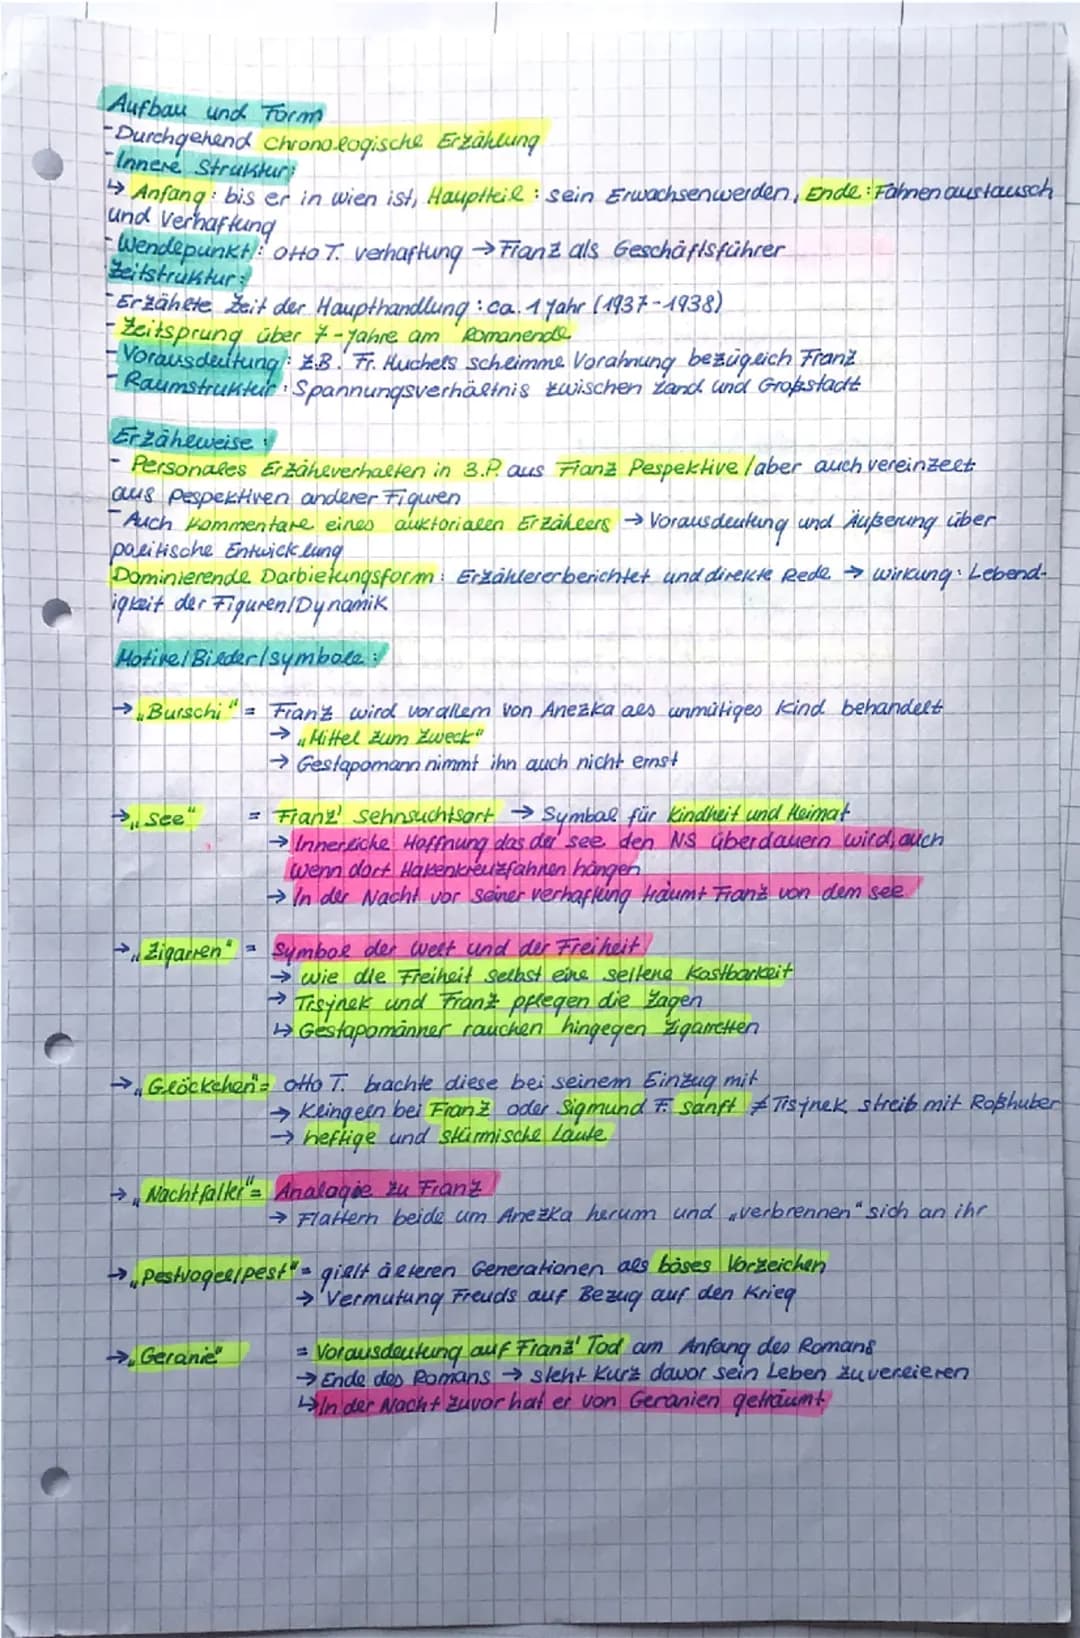 Aufbau und Form
- Durchgehend chronologische Erzählung
- Innere Struktur:
↳ Anfang: bis er in wien ist, Hauptteil: sein Erwachsenwerden, Ende: Fahnenaustausch
und Verhaftung
- Wendepunkt: Otto T. verhaftung → Franz als Geschäftsführer
Zeitstruktur:
- Erzählte Zeit der Haupthandlung: ca. 1 Jahr (1937-1938)
- Zeitsprung über 7-Jahre am Romanende
- Vorausdeutung: z.B. Fr. Huchels schlimme Vorahnung bezüglich Franz
- Raumstruktur: Spannungsverhältnis zwischen Land und Großstadt
Erzählweise:
- Personales Erzählverhalten in 3.P. aus Franz Pespektive/aber auch vereinzelt
aus Pespektiven anderer Figuren
- Auch Kommentare eines auktorialen Erzählers → Vorausdeutung und Äußerung über
politische Entwicklung
Dominierende Darbietungsform: Erzählererberichtet und direkte Rede → wirkung: Lebend-
igkeit der Figuren/Dynamik
Motive/Bilder/symbole:
→ „Burschi" = Franz wird vorallem von Anezka als unmütiges Kind behandelt
→ „Mittel zum Zweck"
→ Gestapomann nimmt ihn auch nicht ernst
→ „See" = Franz' Sehnsuchtsort → Symbol für Kindheit und Heimat
→ Innerliche Hoffnung das der See den NS überdauern wird, auch
wenn dort Hakenkreuzfahnen hängen
→ In der Nacht vor seiner verhaftung träumt Franz von dem see
→ „Zigarren" = Symbol der Welt und der Freiheit
→ wie die Freiheit selbst eine seltene Kostbarkeit
→ Trsjnek und Franz pflegen die
↳ Gestapomänner rauchen hingegen Zigarretten
→ „Glöckchen" = Otto T. brachte diese bei seinem Einzug mit
→ Klingeln bei Franz oder Sigmund F. sanft ≠ Tisjnek streib mit Roßhuber
→ heftige und stürmische Laute
→ „Nachtfalter" = Analogie zu Franz
→ Flattern beide um Anezka herum und „verbrennen" sich an ihr
→ „Pestvogel/pest" = gielt älteren Generationen als böses Vorzeichen
→ Vermutung Freuds auf Bezug auf den Krieg
→ „Geranie" = Vorausdeutung auf Franz' Tod am Anfang des Romans
→ Ende des Romans → steht Kurz davor sein Leben zu verlieren
↳ In der Nacht zuvor hat er von Geranien geträumt